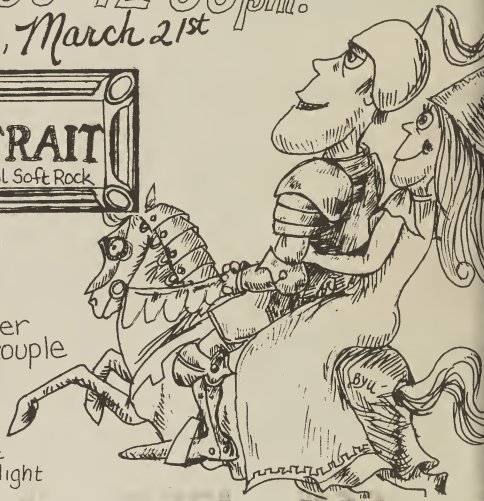 , March 21st
TRAIT
l Soft Rock
er
ouple
light
BYU